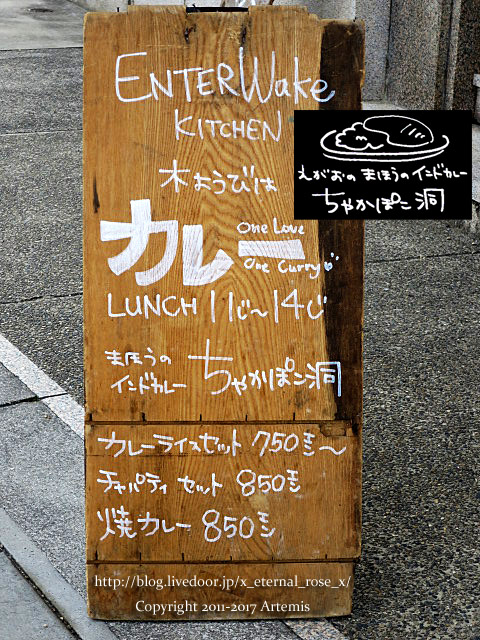 ENTERWake
KITCHEN
木ようびは
カレー
One Love
One Curry
LUNCH 11じ〜14じ
まほうの
インドカレー
ちゃかぽこ洞
カレーライスセット 750モン〜
チャパティ セット 850モン
焼カレー 850モン
えがおの まほうの インドカレー
ちゃかぽこ洞
http://blog.livedoor.jp/x_eternal_rose_x/
Copyright 2011-2017 Artemis